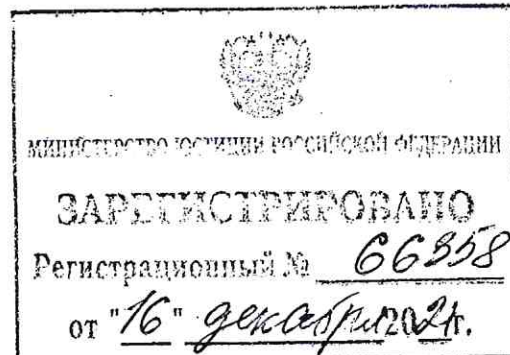 МИНИСТЕРСТВО ЮСТИЦИИ РОССИЙСКОЙ ФЕДЕРАЦИИ
ЗАРЕГИСТРИРОВАНО
Регистрационный № 66358
от "16" декабря 2021г.